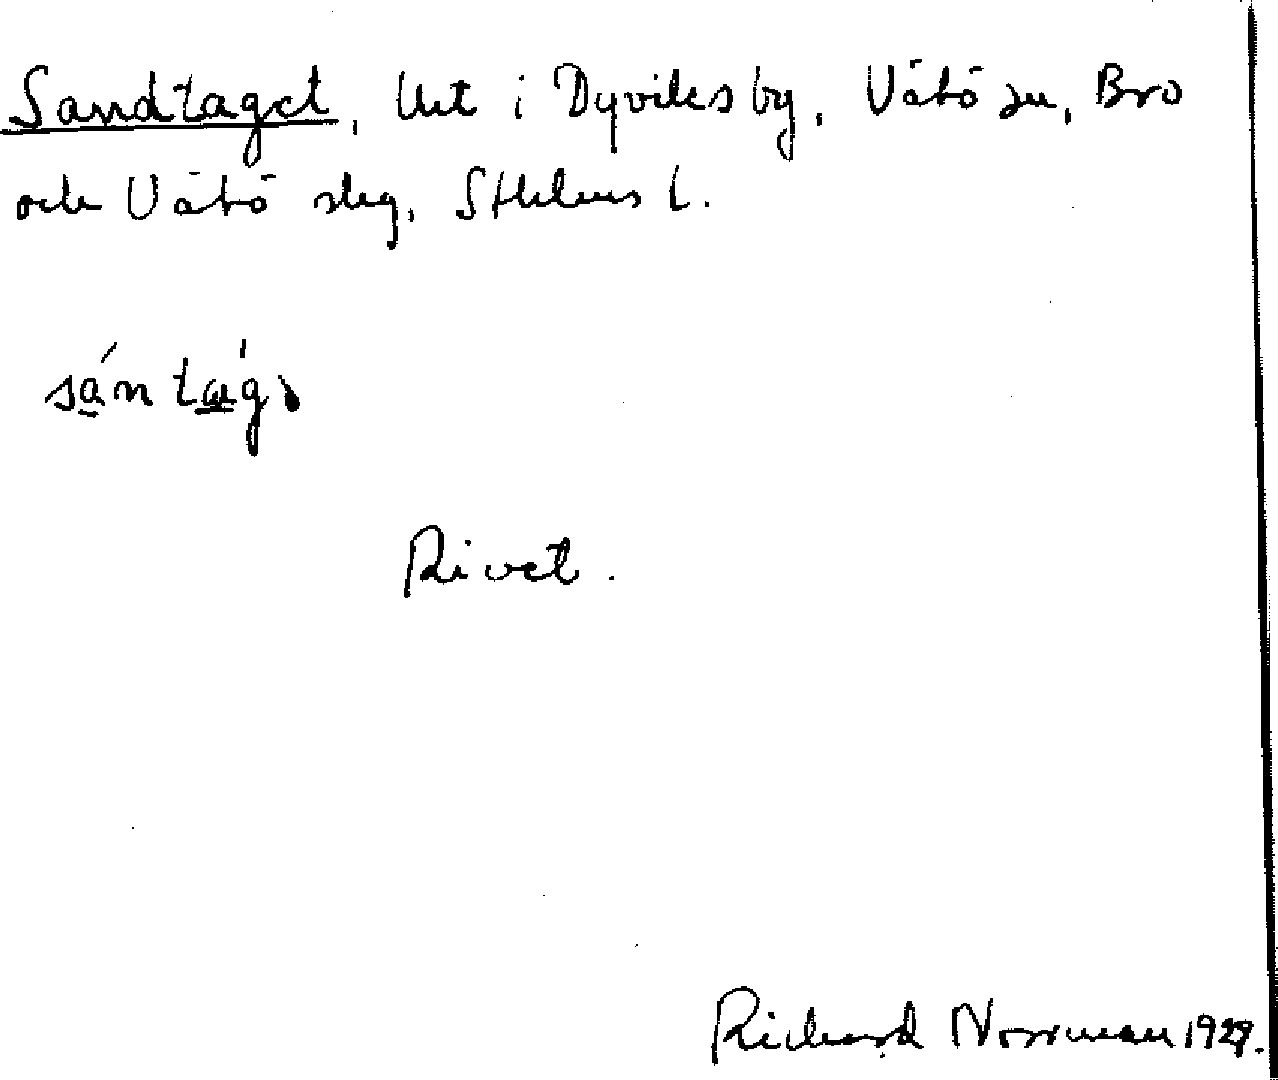 Sandtaget, Urt i Dyviks by, Vätö sn, Bro
och Vätö slg, Sthlms l.
Rivet.
Richard Norrman